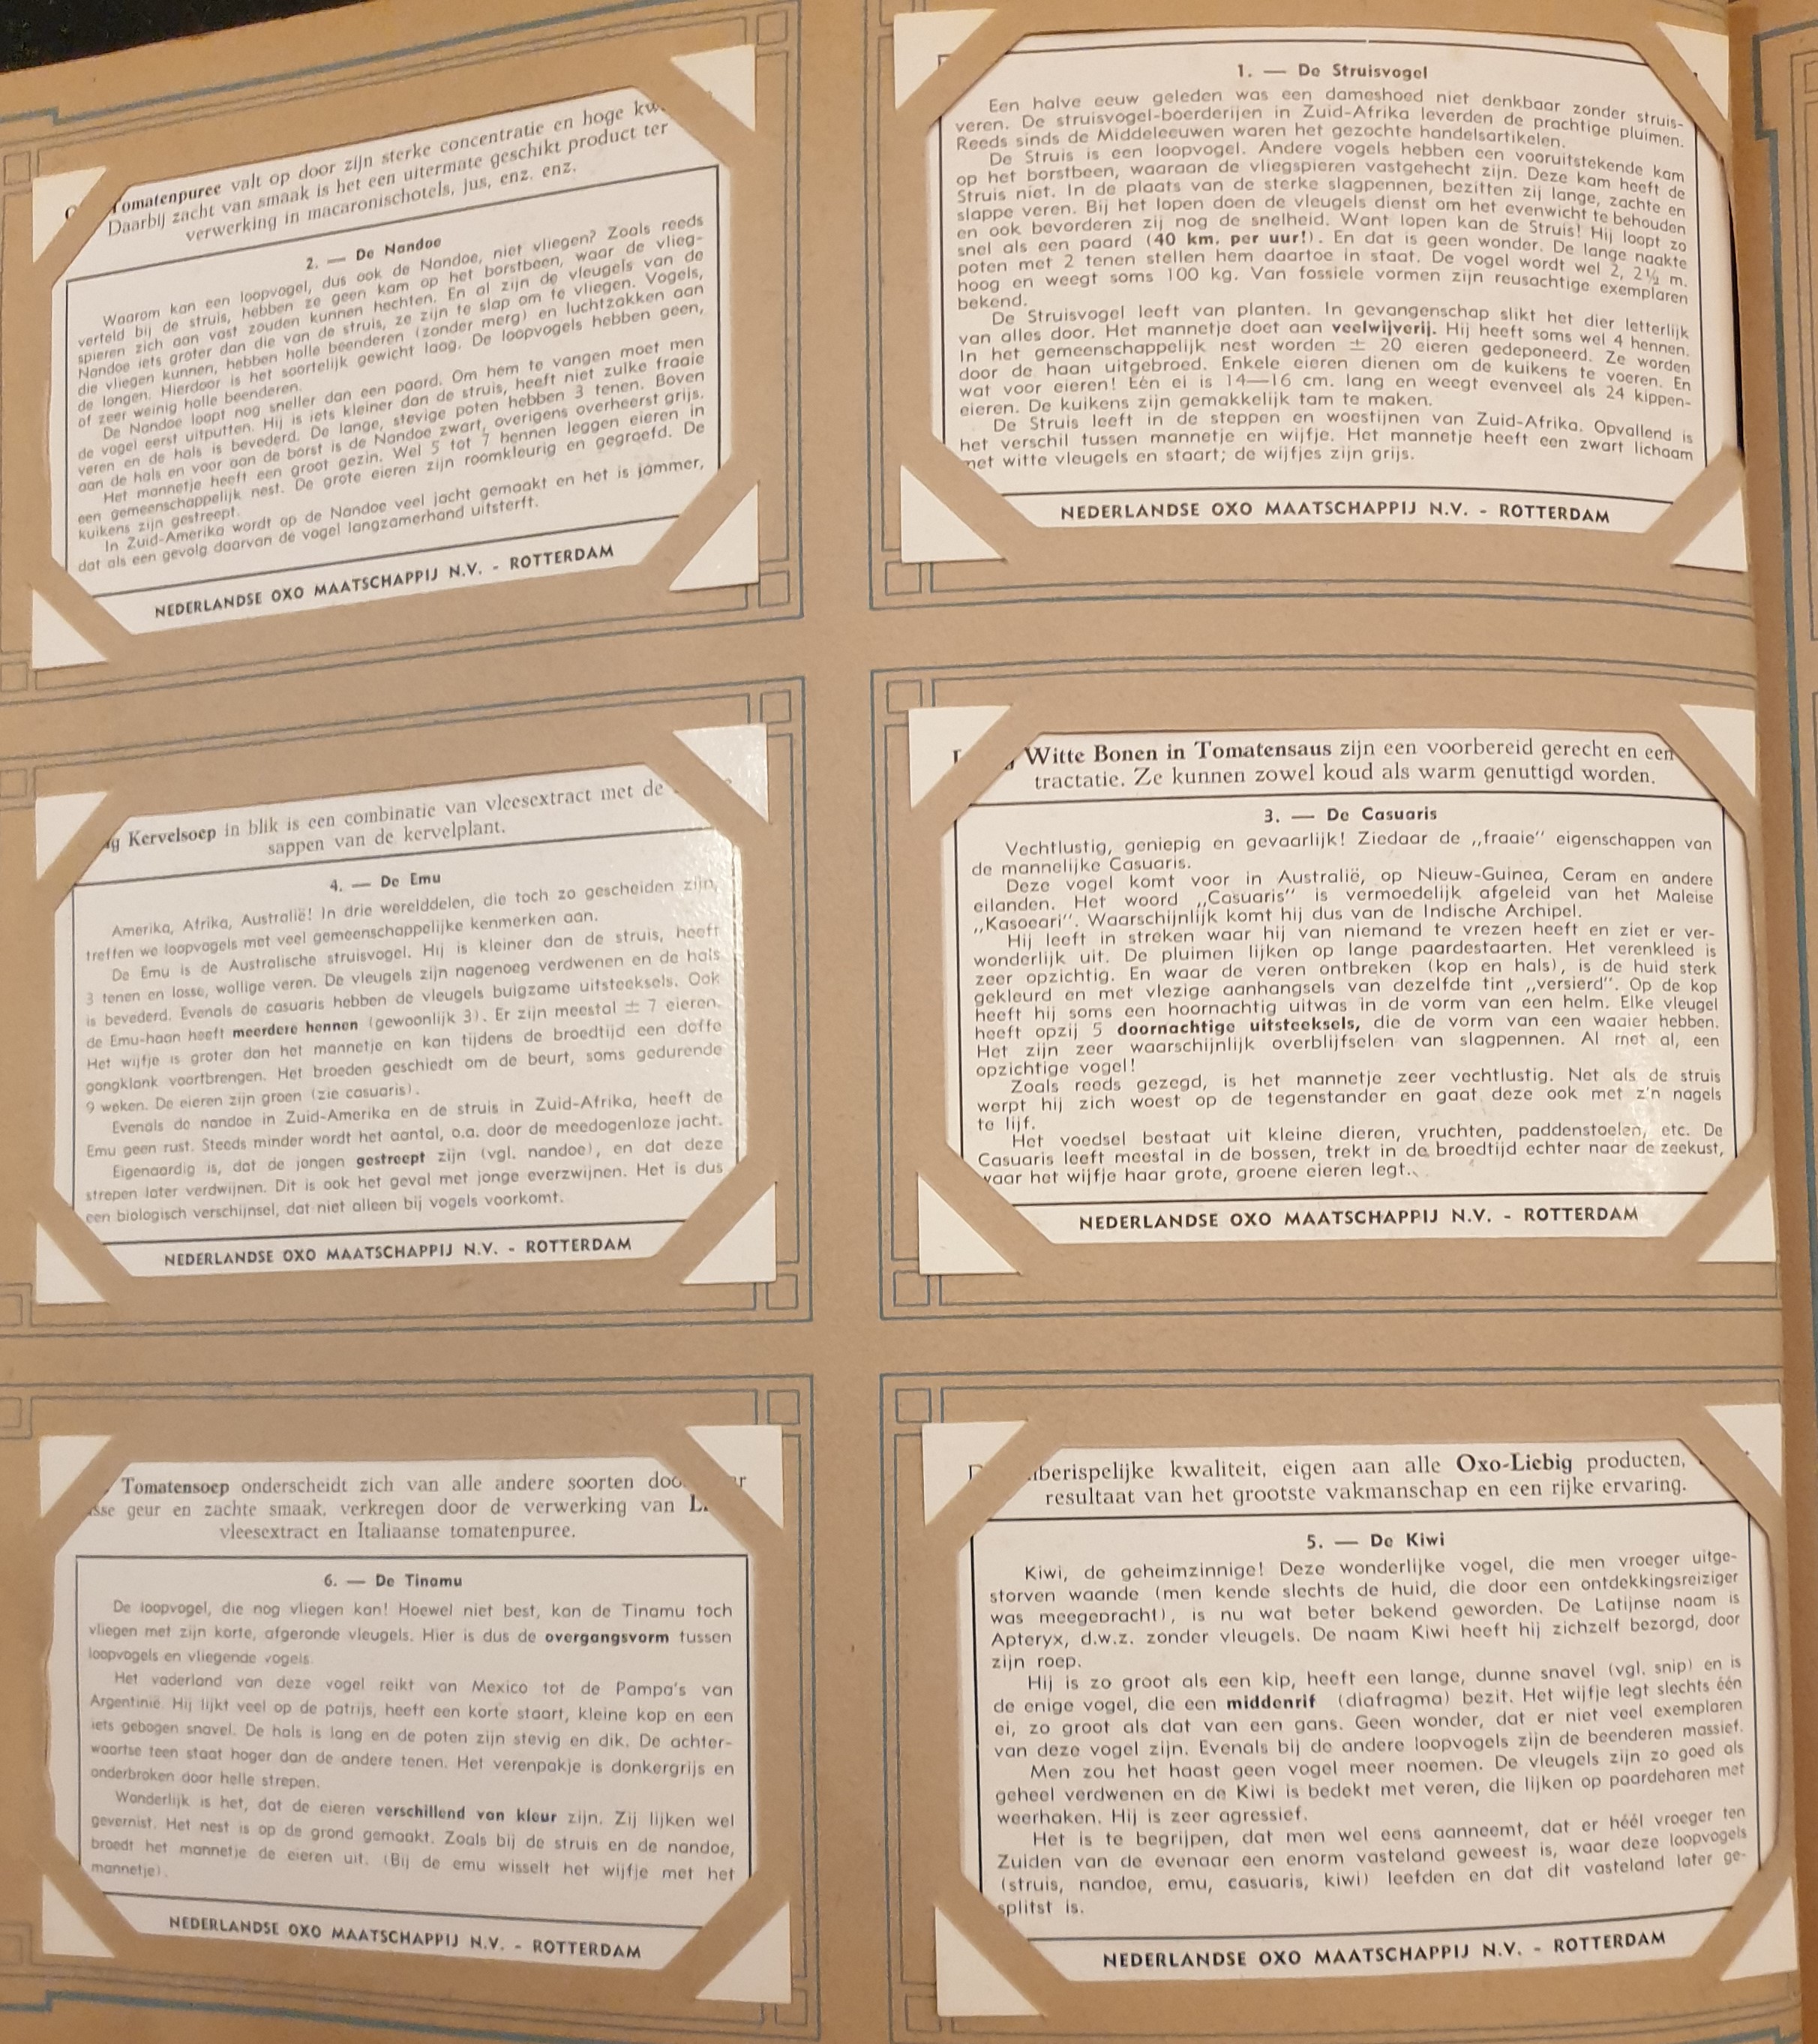 Tomatenpuree valt op door zijn sterke concentratie en hoge
Daarbij zacht van smaak is het een uitermate geschikt product ter
verwerking in macaronischotels, jus, enz. enz.
2. — De Nandoe
Waarom kan een loopvogel, dus ook de Nandoe, niet vliegen? Zoals reeds
verteld bij de struis, hebben ze geen kam op het borstbeen, waar de vlieg-
spieren zich aan vast zouden kunnen hechten. En al zijn de vleugels van de
Nandoe iets groter dan die van de struis, ze zijn te slap om te vliegen. Vogels,
die vliegen kunnen, hebben holle beenderen (zonder merg) en luchtzakken aan
de longen. Hierdoor is het soortelijk gewicht laag. De loopvogels hebben geen,
of zeer weinig holle beenderen.
De Nandoe loopt nog sneller dan een paard. Om hem te vangen moet men
de vogel eerst uitputten. Hij is iets kleiner dan de struis, heeft niet zulke fraaie
veren en de hals is bevederd. De lange, stevige poten hebben 3 tenen. Boven
aan de hals en voor aan de borst is de Nandoe zwart, overigens overheerst grijs.
Het mannetje heeft een groot gezin. Wel 5 tot 7 hennen leggen eieren in
een gemeenschappelijk nest. De grote eieren zijn roomkleurig en gegroefd. De
kuikens zijn gestreept.
In Zuid-Amerika wordt op de Nandoe veel jacht gemaakt en het is jammer,
dat als een gevolg daarvan de vogel langzamerhand uitsterft.
NEDERLANDSE OXO MAATSCHAPPIJ N.V. - ROTTERDAM
1. — De Struisvogel
Een halve eeuw geleden was een dameshoed niet denkbaar zonder struis-
veren. De struisvogel-boerderijen in Zuid-Afrika leverden de prachtige pluimen.
Reeds sinds de Middeleeuwen waren het gezochte handelsartikelen.
De Struis is een loopvogel. Andere vogels hebben een vooruitstekende kam
op het borstbeen, waaraan de vliegspieren vastgehecht zijn. Deze kam heeft de
Struis niet. In de plaats van de sterke slagpennen, bezitten zij lange, zachte en
slappe veren. Bij het lopen doen de vleugels dienst om het evenwicht te behouden
en ook bevorderen zij nog de snelheid. Want lopen kan de Struis! Hij loopt zo
snel als een paard (40 km. per uur!). En dat is geen wonder. De lange naakte
poten met 2 tenen stellen hem daartoe in staat. De vogel wordt wel 2, 2½ m.
hoog en weegt soms 100 kg. Van fossiele vormen zijn reusachtige exemplaren
bekend.
De Struisvogel leeft van planten. In gevangenschap slikt het dier letterlijk
van alles door. Het mannetje doet aan veelwijverij. Hij heeft soms wel 4 hennen.
In het gemeenschappelijk nest worden ± 20 eieren gedeponeerd. Ze worden
door de haan uitgebroed. Enkele eieren dienen om de kuikens te voeren. En
wat voor eieren! Eén ei is 14—16 cm. lang en weegt evenveel als 24 kippen-
eieren. De kuikens zijn gemakkelijk tam te maken.
De Struis leeft in de steppen en woestijnen van Zuid-Afrika. Opvallend is
het verschil tussen mannetje en wijfje. Het mannetje heeft een zwart lichaam
met witte vleugels en staart; de wijfjes zijn grijs.
NEDERLANDSE OXO MAATSCHAPPIJ N.V. - ROTTERDAM
Kervelsoep in blik is een combinatie van vleesextract met de
sappen van de kervelplant.
4. — De Emu
Amerika, Afrika, Australië! In drie werelddelen, die toch zo gescheiden zijn,
treffen we loopvogels met veel gemeenschappelijke kenmerken aan.
De Emu is de Australische struisvogel. Hij is kleiner dan de struis, heeft
3 tenen en losse, wollige veren. De vleugels zijn nagenoeg verdwenen en de hals
is bevederd. Evenals de casuaris hebben de vleugels buigzame uitsteeksels. Ook
de Emu-haan heeft meerdere hennen (gewoonlijk 3). Er zijn meestal ± 7 eieren.
Het wijfje is groter dan het mannetje en kan tijdens de broedtijd een doffe
gongklank voortbrengen. Het broeden geschiedt om de beurt, soms gedurende
9 weken. De eieren zijn groen (zie casuaris).
Evenals de nandoe in Zuid-Amerika en de struis in Zuid-Afrika, heeft de
Emu geen rust. Steeds minder wordt het aantal, o.a. door de meedogenloze jacht.
Eigenaardig is, dat de jongen gestreept zijn (vgl. nandoe), en dat deze
strepen later verdwijnen. Dit is ook het geval met jonge everzwijnen. Het is dus
een biologisch verschijnsel, dat niet alleen bij vogels voorkomt.
NEDERLANDSE OXO MAATSCHAPPIJ N.V. - ROTTERDAM
Witte Bonen in Tomatensaus zijn een voorbereid gerecht en een
tractatie. Ze kunnen zowel koud als warm genuttigd worden.
3. — De Casuaris
Vechtlustig, geniepig en gevaarlijk! Ziedaar de „fraaie" eigenschappen van
de mannelijke Casuaris.
Deze vogel komt voor in Australië, op Nieuw-Guinea, Ceram en andere
eilanden. Het woord „Casuaris" is vermoedelijk afgeleid van het Maleise
„Kasoeari". Waarschijnlijk komt hij dus van de Indische Archipel.
Hij leeft in streken waar hij van niemand te vrezen heeft en ziet er ver-
wonderlijk uit. De pluimen lijken op lange paardestaarten. Het verenkleed is
zeer opzichtig. En waar de veren ontbreken (kop en hals), is de huid sterk
gekleurd en met vlezige aanhangsels van dezelfde tint „versierd". Op de kop
heeft hij soms een hoornachtig uitwas in de vorm van een helm. Elke vleugel
heeft opzij 5 doornachtige uitsteeksels, die de vorm van een waaier hebben.
Het zijn zeer waarschijnlijk overblijfselen van slagpennen. Al met al, een
opzichtige vogel!
Zoals reeds gezegd, is het mannetje zeer vechtlustig. Net als de struis
werpt hij zich woest op de tegenstander en gaat deze ook met z'n nagels
te lijf.
Het voedsel bestaat uit kleine dieren, vruchten, paddenstoelen, etc. De
Casuaris leeft meestal in de bossen, trekt in de broedtijd echter naar de zeekust,
waar het wijfje haar grote, groene eieren legt.
NEDERLANDSE OXO MAATSCHAPPIJ N.V. - ROTTERDAM
Tomatensoep onderscheidt zich van alle andere soorten
geur en zachte smaak, verkregen door de verwerking van
vleesextract en Italiaanse tomatenpuree.
6. — De Tinamu
De loopvogel, die nog vliegen kan! Hoewel niet best, kan de Tinamu toch
vliegen met zijn korte, afgeronde vleugels. Hier is dus de overgangsvorm tussen
loopvogels en vliegende vogels.
Het vaderland van deze vogel reikt van Mexico tot de Pampa's van
Argentinië. Hij lijkt veel op de patrijs, heeft een korte staart, kleine kop en een
iets gebogen snavel. De hals is lang en de poten zijn stevig en dik. De achter-
waartse teen staat hoger dan de andere tenen. Het verenpakje is donkergrijs en
onderbroken door helle strepen.
Wonderlijk is het, dat de eieren verschillend van kleur zijn. Zij lijken wel
gevernist. Het nest is op de grond gemaakt. Zoals bij de struis en de nandoe,
broedt het mannetje de eieren uit. (Bij de emu wisselt het wijfje met het
mannetje).
NEDERLANDSE OXO MAATSCHAPPIJ N.V. - ROTTERDAM
kwaliteit, eigen aan alle Oxo-Liebig producten,
resultaat van het grootste vakmanschap en een rijke ervaring.
5. — De Kiwi
Kiwi, de geheimzinnige! Deze wonderlijke vogel, die men vroeger uitge-
storven waande (men kende slechts de huid, die door een ontdekkingsreiziger
was meegebracht), is nu wat beter bekend geworden. De Latijnse naam is
Apteryx, d.w.z. zonder vleugels. De naam Kiwi heeft hij zichzelf bezorgd, door
zijn roep.
Hij is zo groot als een kip, heeft een lange, dunne snavel (vgl. snip) en is
de enige vogel, die een middenrif (diafragma) bezit. Het wijfje legt slechts één
ei, zo groot als dat van een gans. Geen wonder, dat er niet veel exemplaren
van deze vogel zijn. Evenals bij de andere loopvogels zijn de beenderen massief.
Men zou het haast geen vogel meer noemen. De vleugels zijn zo goed als
geheel verdwenen en de Kiwi is bedekt met veren, die lijken op paardeharen met
weerhaken. Hij is zeer agressief.
Het is te begrijpen, dat men wel eens aanneemt, dat er héél vroeger ten
Zuiden van de evenaar een enorm vasteland geweest is, waar deze loopvogels
(struis, nandoe, emu, casuaris, kiwi) leefden en dat dit vasteland later ge-
splitst is.
NEDERLANDSE OXO MAATSCHAPPIJ N.V. - ROTTERDAM